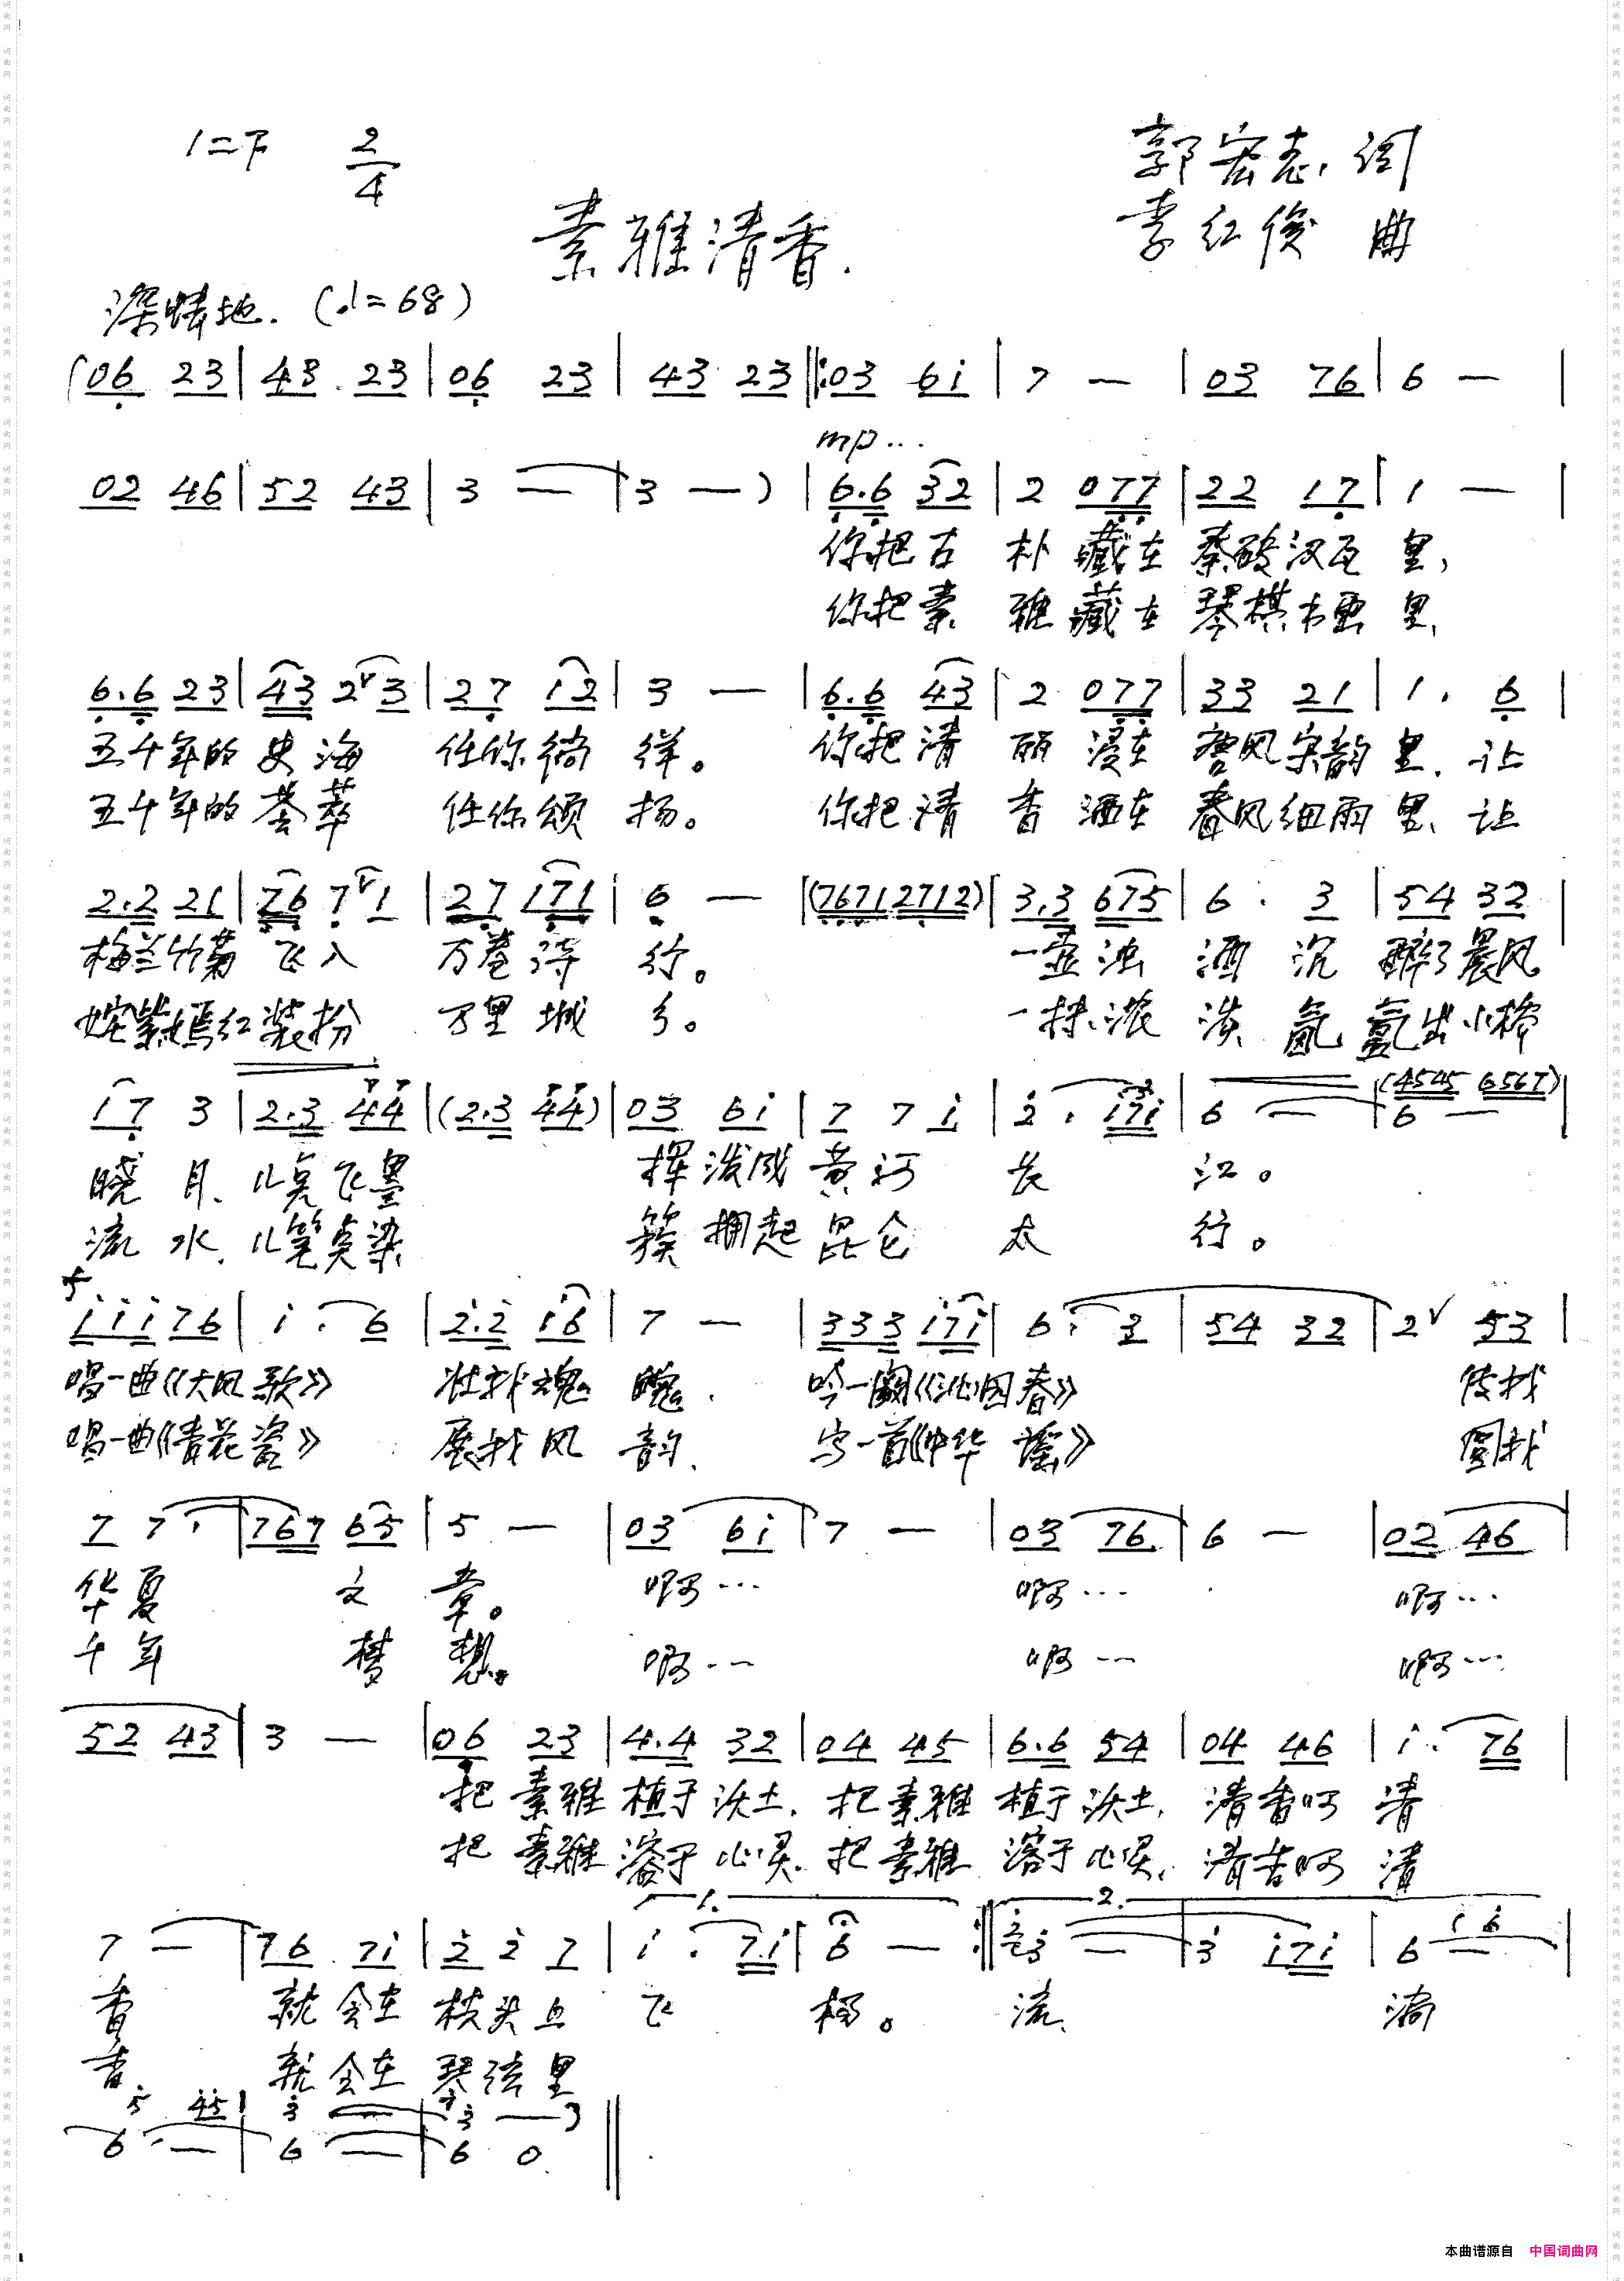 1=F 2/4
郭宏志 词
素雅清香.
李红俊 曲
深情地. (♩=68)
(06 23|43 23|06 23|43 23‖:03 6i|7 —|03 76|6 —|
mp...
02 46|52 43|3 —|3 —)|6.6 32|2 077|22 17|1 —|
你把古 朴 藏在 秦砖汉瓦 里,
你把素 雅 藏在 琴棋书画 里,
6.6 23|43 2ˇ3|27 12|3 —|6.6 43|2 077|33 21|1. 6|
五千年的 史海 任你徜 徉。 你把清 丽 浸在 唐风宋韵 里, 让
五千年的 荟萃 任你颂 扬。 你把清 香 洒在 春风细雨 里, 让
2.2 21|76 7ˇ1|27 171|6 —|(7671 2712)|3.3 675|6. 3|54 32|
梅兰竹菊 飞入 万卷诗 行。 一壶浊 酒 沉 醉了晨风
姹紫嫣红 装扮 万里城 乡。 一抹浓 淡 氤 氲出小桥
(4545 6567)
17 3|2.3 44|(2.3 44)|03 6i|7 7 i|2. i7i|6 —|6 —|
晓 月, 几点飞墨 挥泼成 黄河 长 江。
流 水, 几笔点染 簇拥起 昆仑 太 行。
f
iii 76|i. 6|2.2 i6|7 —|333 i7i|6. 3|54 32|2ˇ 53|
唱一曲《大风歌》 壮我魂 魄, 吟一阕《沁园春》 传我
唱一曲《青花瓷》 展我风 韵, 写一首《中华 谣》 圆我
7 7.|767 65|5 —|03 6i|7 —|03 76|6 —|02 46|
华夏 文 章。 啊… 啊… 啊…
千年 梦 想。 啊… 啊… 啊…
52 43|3 —|06 23|4.4 32|04 45|6.6 54|04 46|i. 76|
把 素雅 植于 沃土, 把 素雅 植于 沃土, 清香啊 清
把 素雅 溶于 心灵, 把 素雅 溶于 心灵, 清香啊 清
1. 2.
7 —|76 7i|2 2 7|i. 7i|6 —:‖3 —|3 i7i|6 —|
香 就会在 枝头上 飞 扬。 流 淌
香 就会在 琴弦里
5 45|3 —|3 —
6. —|6 —|6 0‖
本曲谱源自 中国词曲网